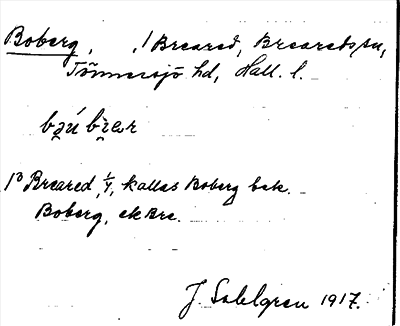 Boberg, , / Breared, Brearets sn,
Tönnersjö hd, Hall. l.
Breared, 1/4, kallas Boberg bek.
Boberg, ek Bre.
J. Sahlgren 1917.